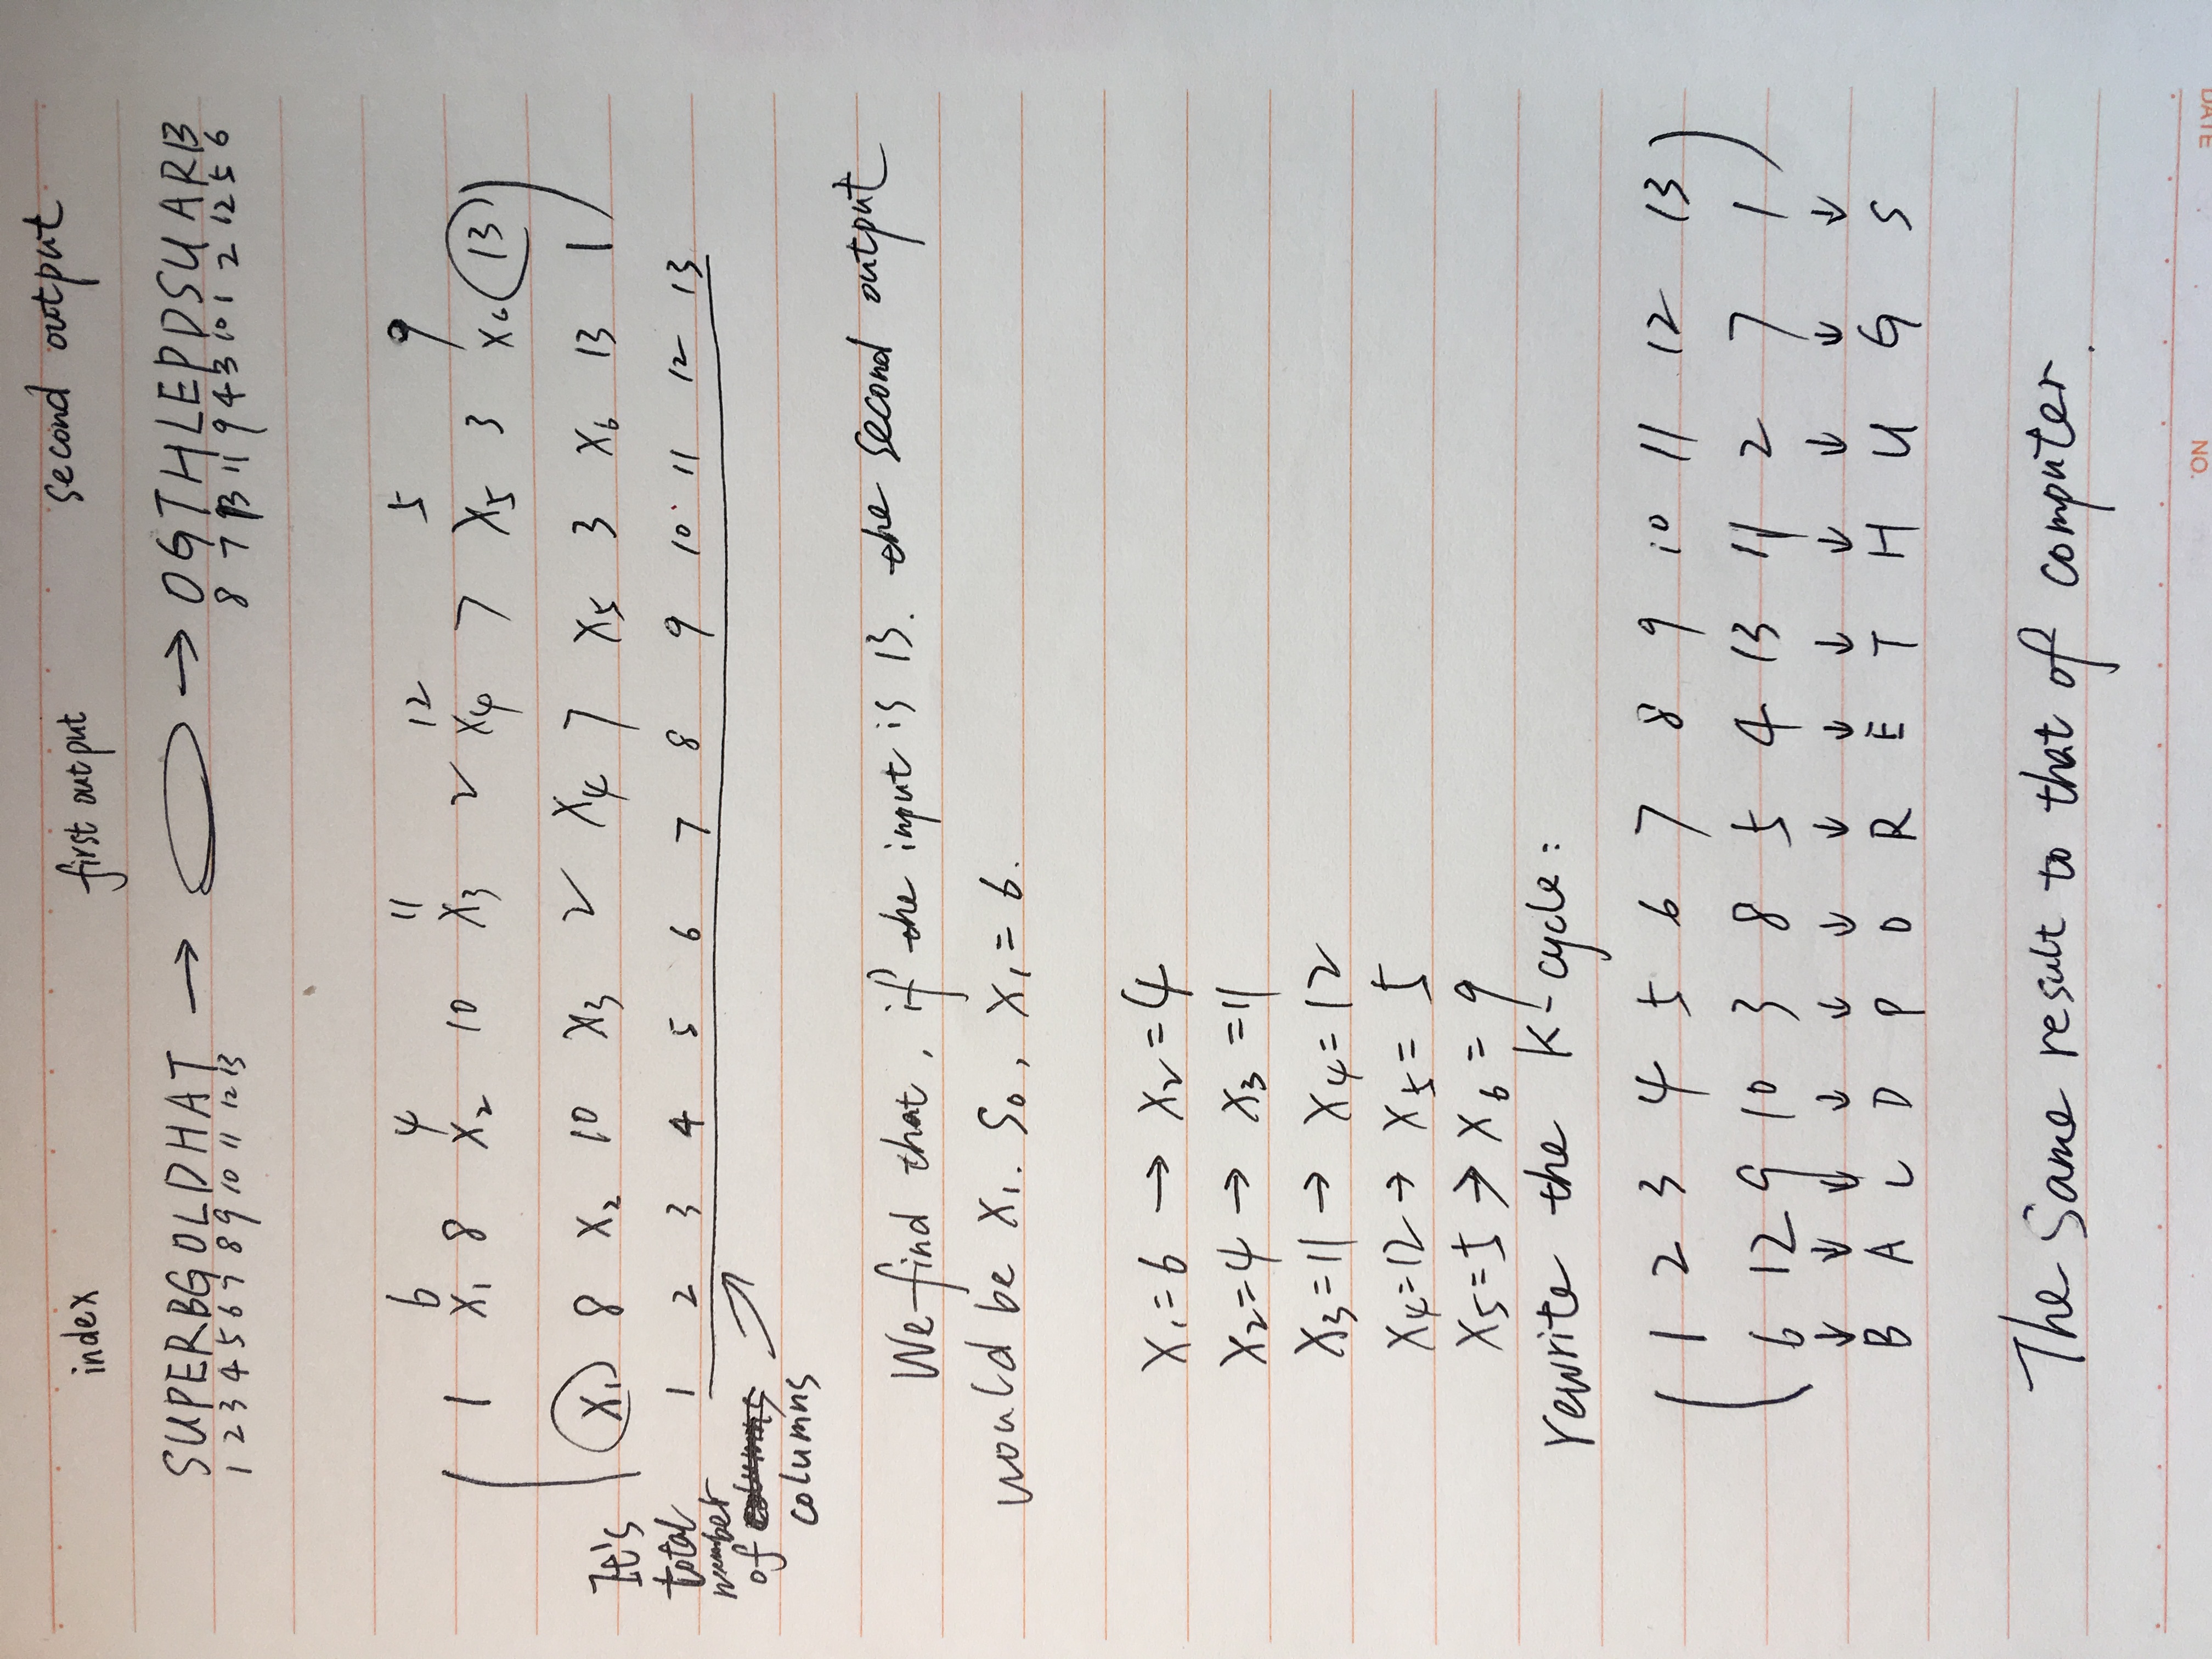 index first output second output
SUPERBGOLDHAT → → OGTHLEPDSUARB
1 2 3 4 5 6 7 8 9 10 11 12 13 8 7 13 11 9 4 3 10 1 2 12 5 6
6 4 11 12 5 9
( 1 X₁ 8 X₂ 10 X₃ 2 X₄ 7 X₅ 3 X₆ 13 )
( X₁ 8 X₂ 10 X₃ 2 X₄ 7 X₅ 3 X₆ 13 1 )
1 2 3 4 5 6 7 8 9 10 11 12 13
It's
total
number
of
columns
We find that, if the input is 13. the second output
would be X₁. So, X₁ = 6.
X₁ = 6 → X₂ = 4
X₂ = 4 → X₃ = 11
X₃ = 11 → X₄ = 12
X₄ = 12 → X₅ = 5
X₅ = 5 → X₆ = 9
rewrite the K-cycle:
( 1 2 3 4 5 6 7 8 9 10 11 12 13 )
( 6 12 9 10 3 8 5 4 13 11 2 7 1 )
↓ ↓ ↓ ↓ ↓ ↓ ↓ ↓ ↓ ↓ ↓ ↓ ↓
B A L D P O R E T H U G S
The Same result to that of computer.
NO.
DATE